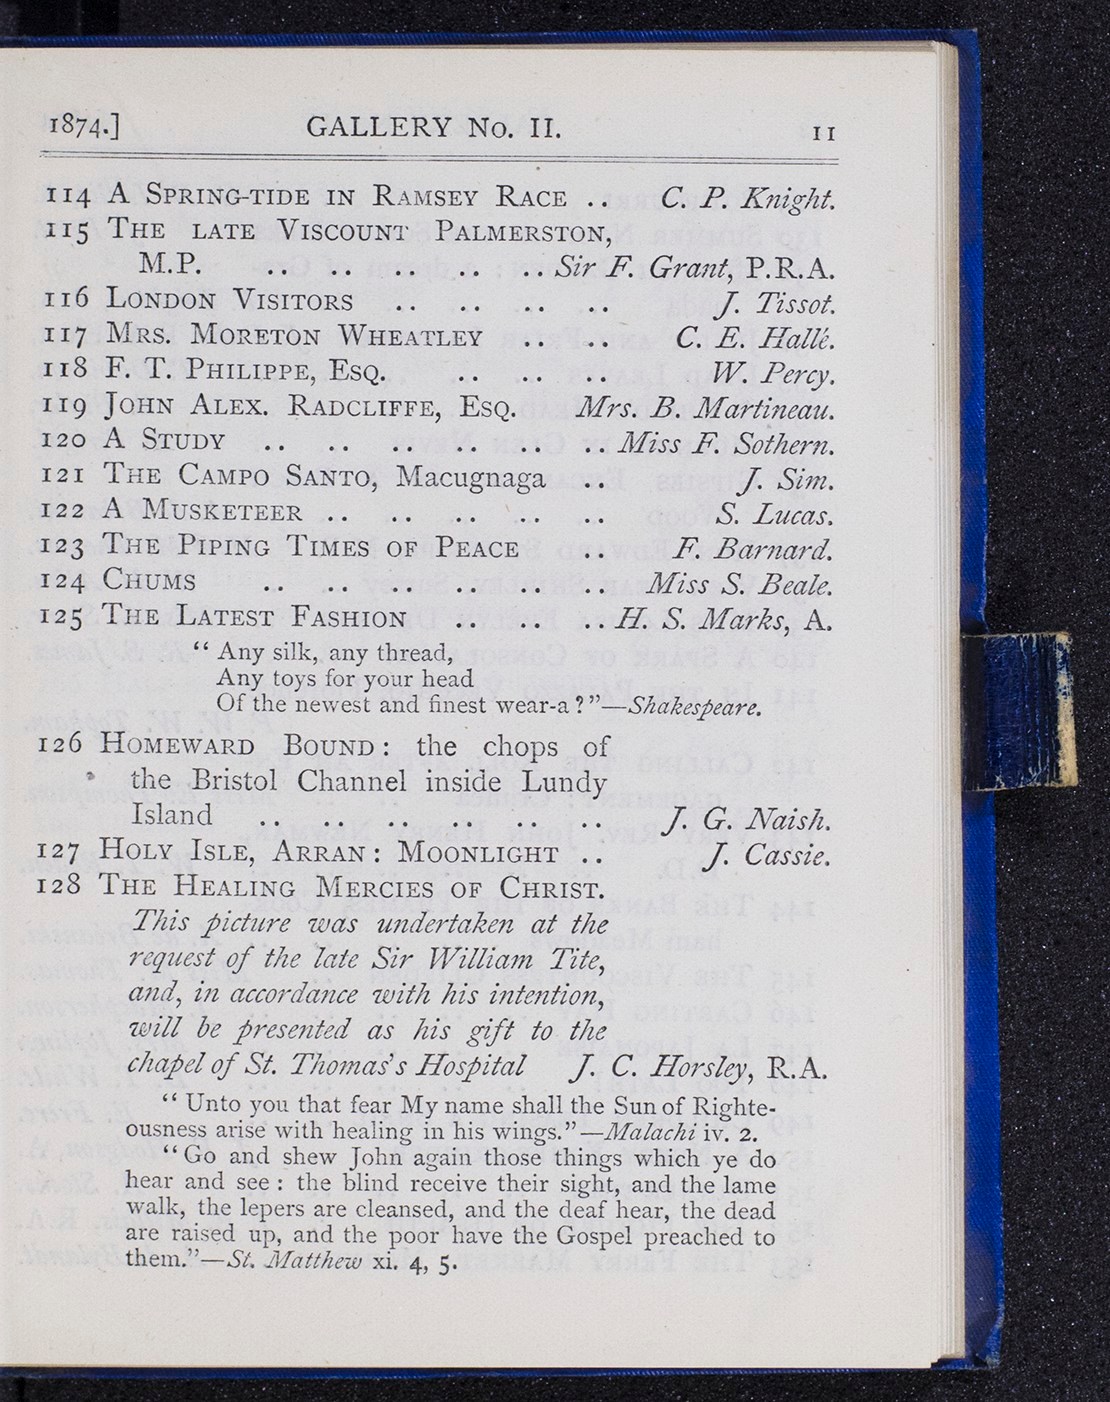 1874.] GALLERY No. II. 11
114 A SPRING-TIDE IN RAMSEY RACE .. C. P. Knight.
115 THE LATE VISCOUNT PALMERSTON,
M.P. .. .. .. .. .. Sir F. Grant, P.R.A.
116 LONDON VISITORS .. .. .. .. J. Tissot.
117 MRS. MORETON WHEATLEY .. .. C. E. Hallé.
118 F. T. PHILIPPE, ESQ. .. .. .. W. Percy.
119 JOHN ALEX. RADCLIFFE, ESQ. Mrs. B. Martineau.
120 A STUDY .. .. .. .. .. .. Miss F. Sothern.
121 THE CAMPO SANTO, Macugnaga .. J. Sim.
122 A MUSKETEER .. .. .. .. .. S. Lucas.
123 THE PIPING TIMES OF PEACE .. F. Barnard.
124 CHUMS .. .. .. .. .. .. Miss S. Beale.
125 THE LATEST FASHION .. .. .. H. S. Marks, A.
“ Any silk, any thread,
Any toys for your head
Of the newest and finest wear-a ? ”—Shakespeare.
126 HOMEWARD BOUND : the chops of
the Bristol Channel inside Lundy
Island .. .. .. .. .. .. J. G. Naish.
127 HOLY ISLE, ARRAN : MOONLIGHT .. J. Cassie.
128 THE HEALING MERCIES OF CHRIST.
This picture was undertaken at the
request of the late Sir William Tite,
and, in accordance with his intention,
will be presented as his gift to the
chapel of St. Thomas's Hospital J. C. Horsley, R.A.
“ Unto you that fear My name shall the Sun of Righte-
ousness arise with healing in his wings.”—Malachi iv. 2.
“ Go and shew John again those things which ye do
hear and see : the blind receive their sight, and the lame
walk, the lepers are cleansed, and the deaf hear, the dead
are raised up, and the poor have the Gospel preached to
them.”—St. Matthew xi. 4, 5.